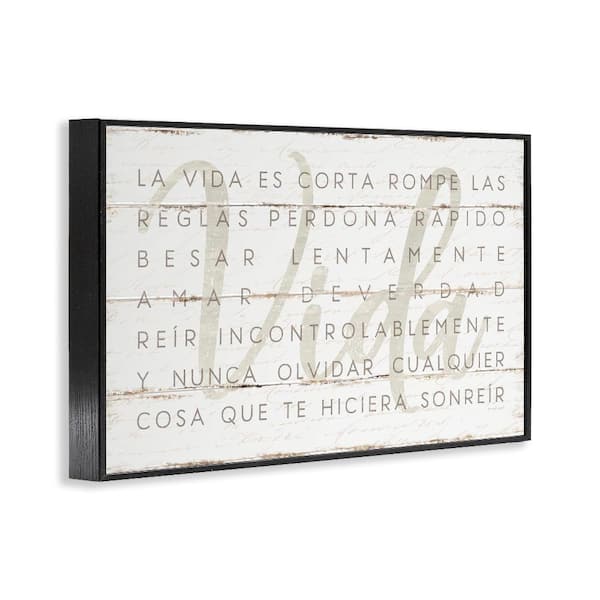 LA VIDA ES CORTA ROMPE LAS
REGLAS PERDONA RÁPIDO
BESAR LENTAMENTE
AMAR DEVERDAD
REÍR INCONTROLABLEMENTE
Y NUNCA OLVIDAR CUALQUIER
COSA QUE TE HICIERA SONREÍR
Vida